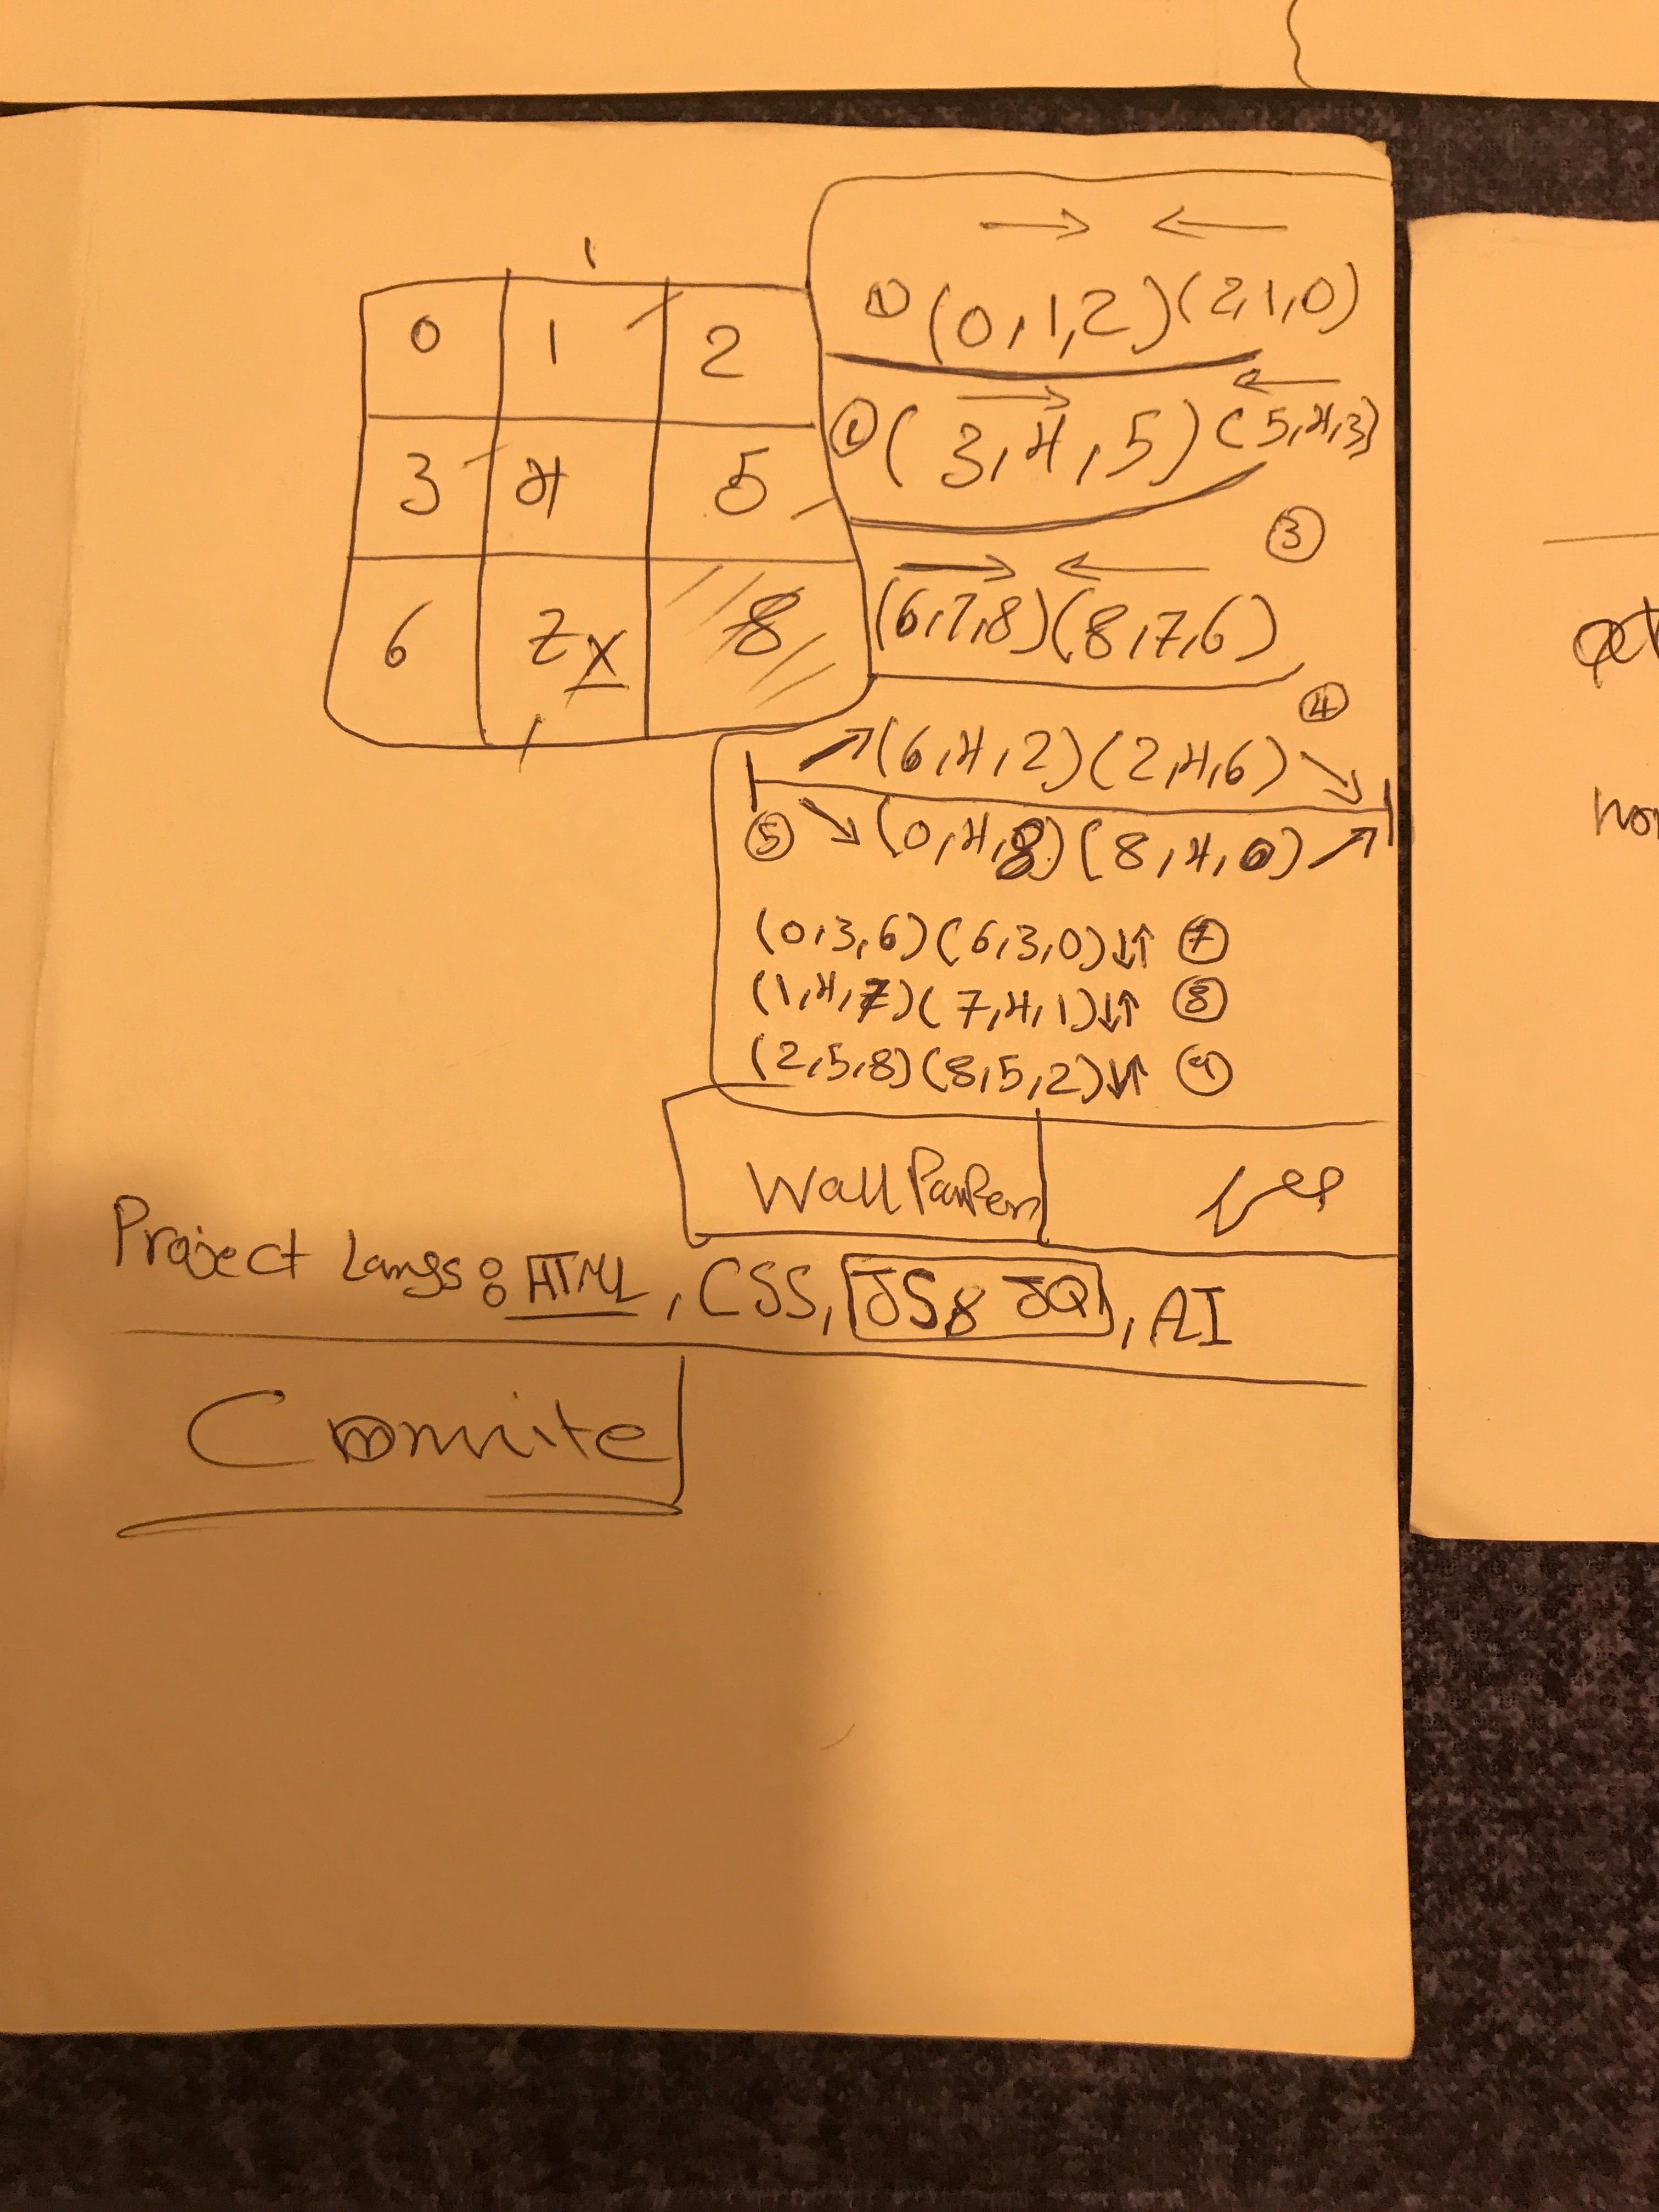 0 1 2
3 4 5
6 7 X 8
① (0,1,2) (2,1,0)
(3,4,5) (5,4,3)
③
(6,7,8) (8,7,6)
④
(6,4,2) (2,4,6)
⑤ (0,4,8) (8,4,0)
(0,3,6) (6,3,0) ↓↑ ⑦
(1,4,7) (7,4,1) ↓↑ ⑧
(2,5,8) (8,5,2) ↓↑ ⑨
Project Langs: HTML, CSS, JS & JQ, AI